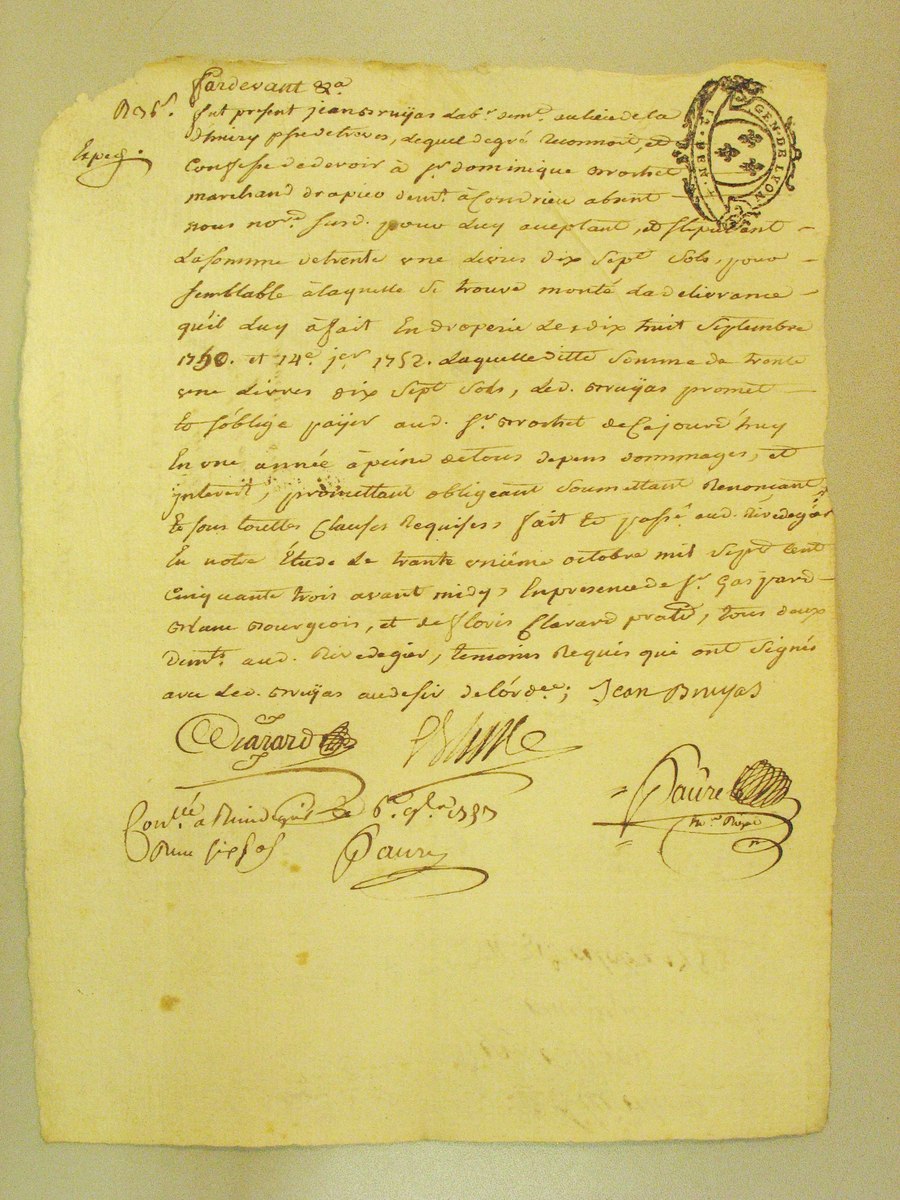 Pardevant &a
fut present jean Bruyas lab.r dem.t au lieu de la
psse de treves, lequel de gré reconnoit, et
Confesse de devoir à s.r dominique Brochet
marchand drapier dem.t à Condrieu absent
nous not.re susd. pour luy aceptant, et stipulant
La somme de trente une livres dix sept sols, pour
semblable à laquelle se trouve monté la delivrance
qu'il luy à fait En draperie les dix huit Septembre
1750. et 14e. j.er 1752. Laquelle ditte Somme de trente
une livres dix sept sols, led. Bruyas promet
et s'oblige païer aud. s.r Brochet de Ce jourd'huy
En une année à peine de tous depens dommages, et
interest, promettant obligeant soumettant Renonceant
et sous touttes Clauses Requises, fait et passé aud. Rivedegier
En notre Étude le trante uniéme octobre mil sept cent
cinquante trois avant midy, En presence de s.r Gaspard
Blanc Bourgeois, et de floris Clarard prat.n, tous deux
dem.ts aud. Rivedegier, temoins Requis qui ont Signés
avec led. Bruyas au desir de l'ord.ce; Jean Bruyas
Clarard
Con.llé a Rivedegier le 6e 9bre 1753
Reçu six sols
Faure
Faure
no.re Royal
GEN. DE LYON
Exped.